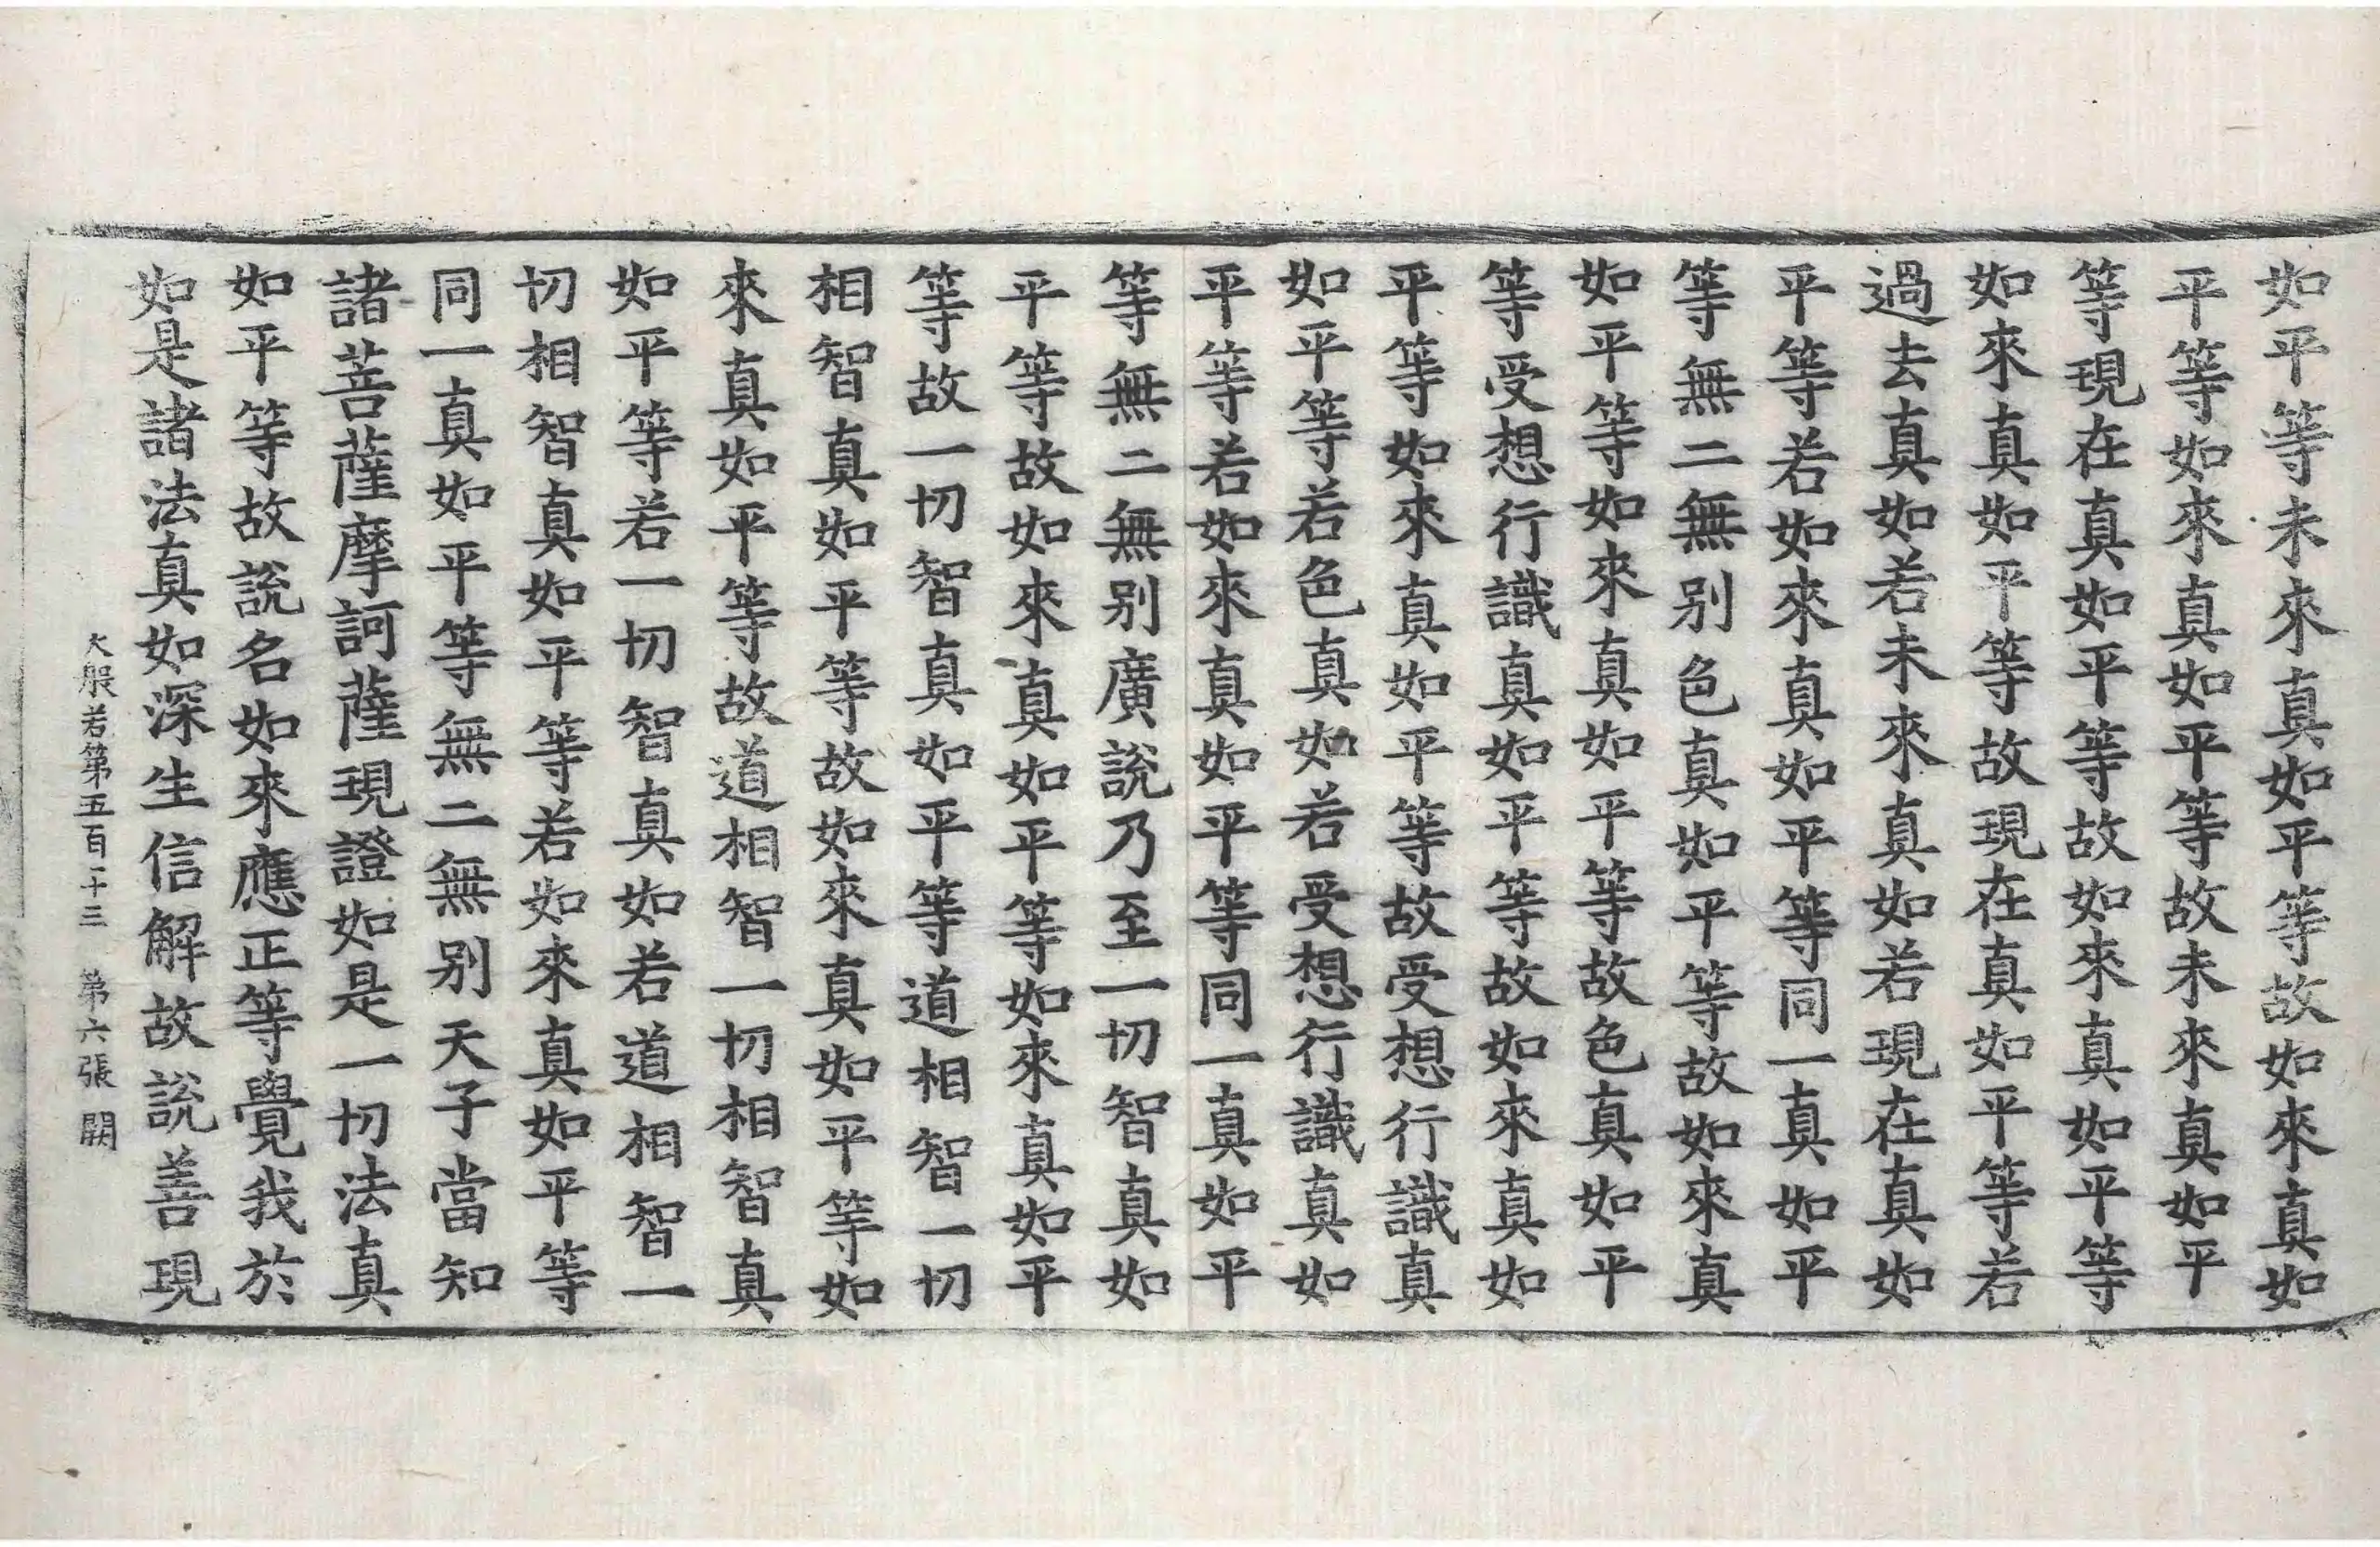 如平等未來真如平等故如來真如
平等如來真如平等故未來真如平
等現在真如平等故如來真如平等
如來真如平等故現在真如平等若
過去真如若未來真如若現在真如
平等若如來真如平等同一真如平
等無二無别色真如平等故如來真
如平等如來真如平等故色真如平
等受想行識真如平等故如來真如
平等如來真如平等故受想行識真
如平等若色真如若受想行識真如
平等若如來真如平等同一真如平
等無二無别廣說乃至一切智真如
平等故如來真如平等如來真如平
等故一切智真如平等道相智一切
相智真如平等故如來真如平等如
來真如平等故道相智一切相智真
如平等若一切智真如若道相智一
切相智真如平等若如來真如平等
同一真如平等無二無别天子當知
諸菩薩摩訶薩現證如是一切法真
如平等故說名如來應正等覺我於
如是諸法真如深生信解故說善現
大般若第五百一十三 第六張 闕